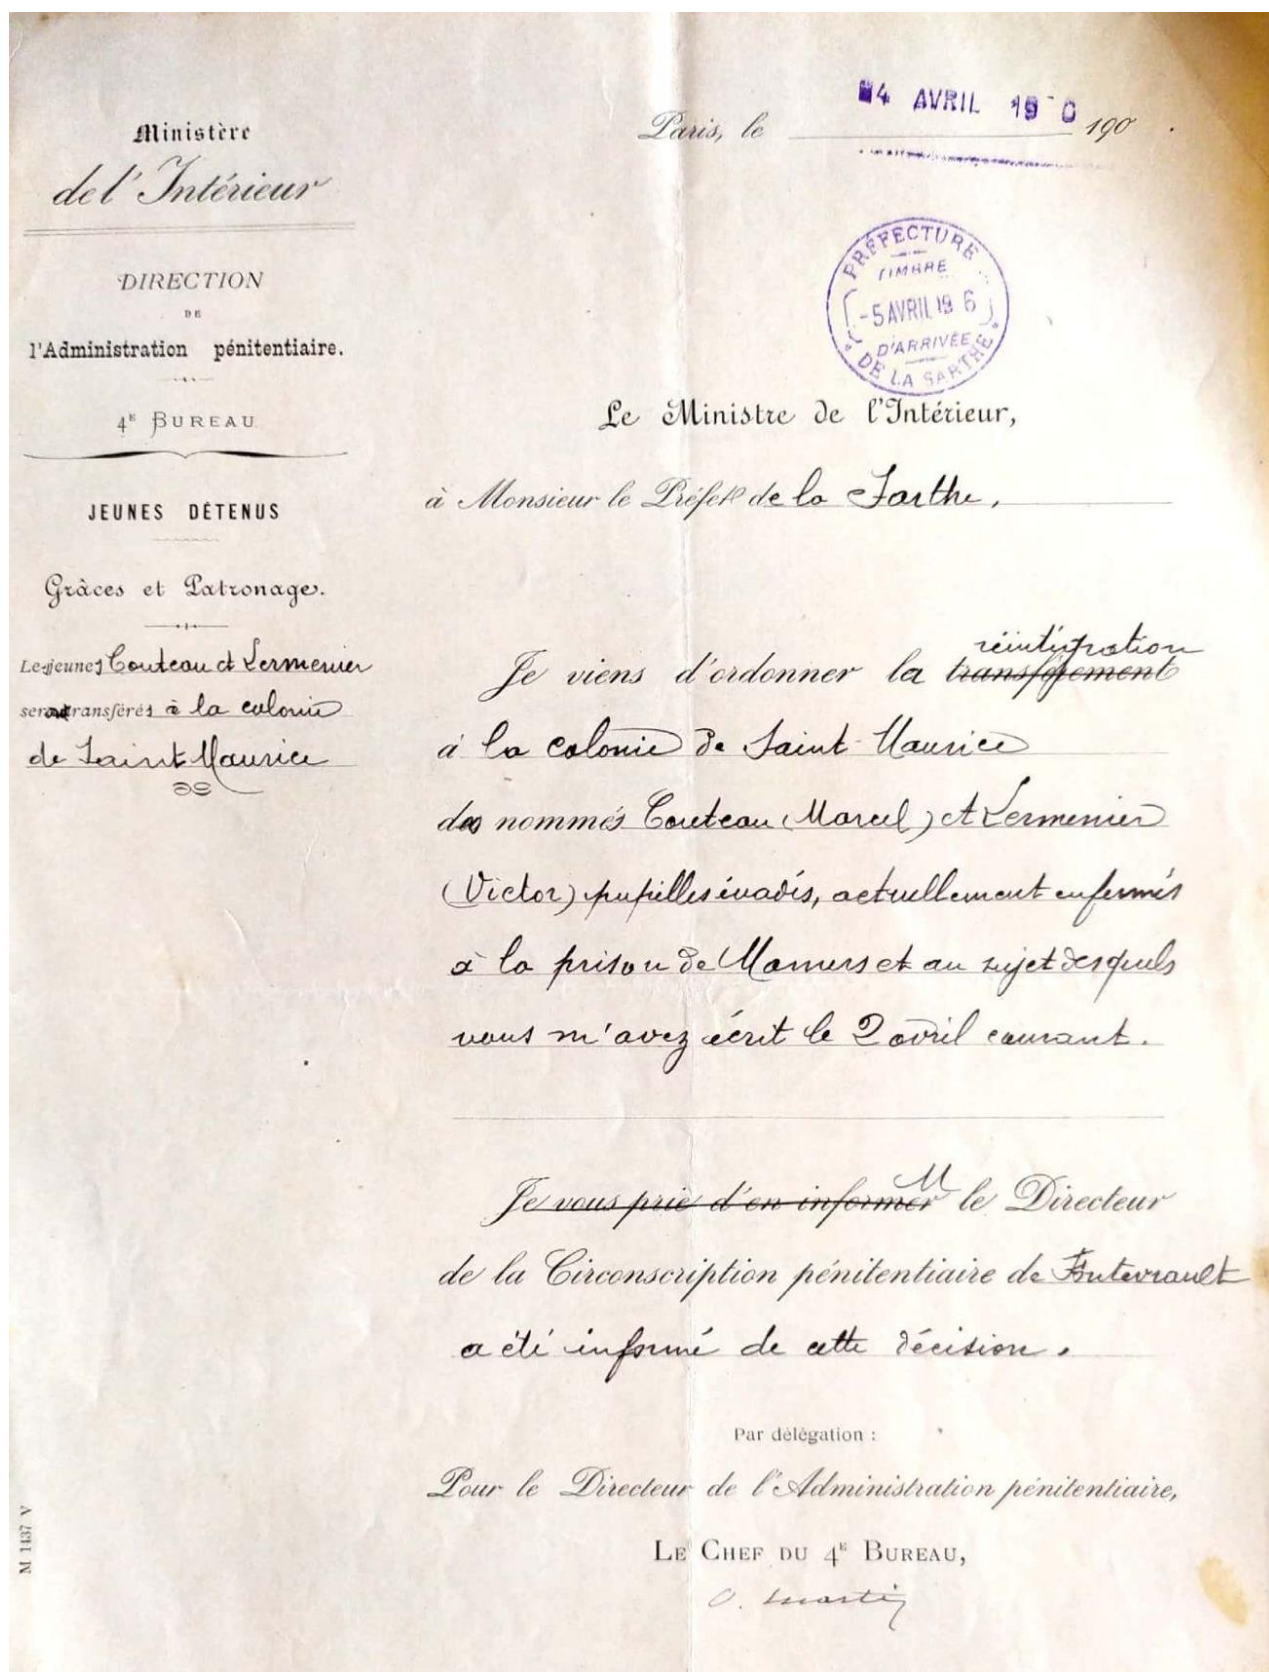 Ministère
de l'Intérieur
DIRECTION
DE
l'Administration pénitentiaire.
4E BUREAU
JEUNES DÉTENUS
Grâces et Patronage.
Les jeunes Couteau et Lermenier
seront transférés à la colonie
de Saint Maurice
M 1437 V
4 AVRIL 19 0
Paris, le 190 .
PRÉFECTURE
TIMBRE
-5 AVRIL 19 6
D'ARRIVÉE
DE LA SARTHE
Le Ministre de l'Intérieur,
à Monsieur le Préfet de la Sarthe,
réintégration
Je viens d'ordonner la
à la colonie de Saint-Maurice
des nommés Couteau (Marcel) et Lermenier
(Victor) pupilles évadés, actuellement enfermés
à la prison de Mamers et au sujet desquels
vous m'avez écrit le 2 avril courant.
M
Je vous prie d'en informer le Directeur
de la Circonscription pénitentiaire de Fontevrault
a été informé de cette décision.
Par délégation :
Pour le Directeur de l'Administration pénitentiaire,
LE CHEF DU 4E BUREAU,
O. Martin